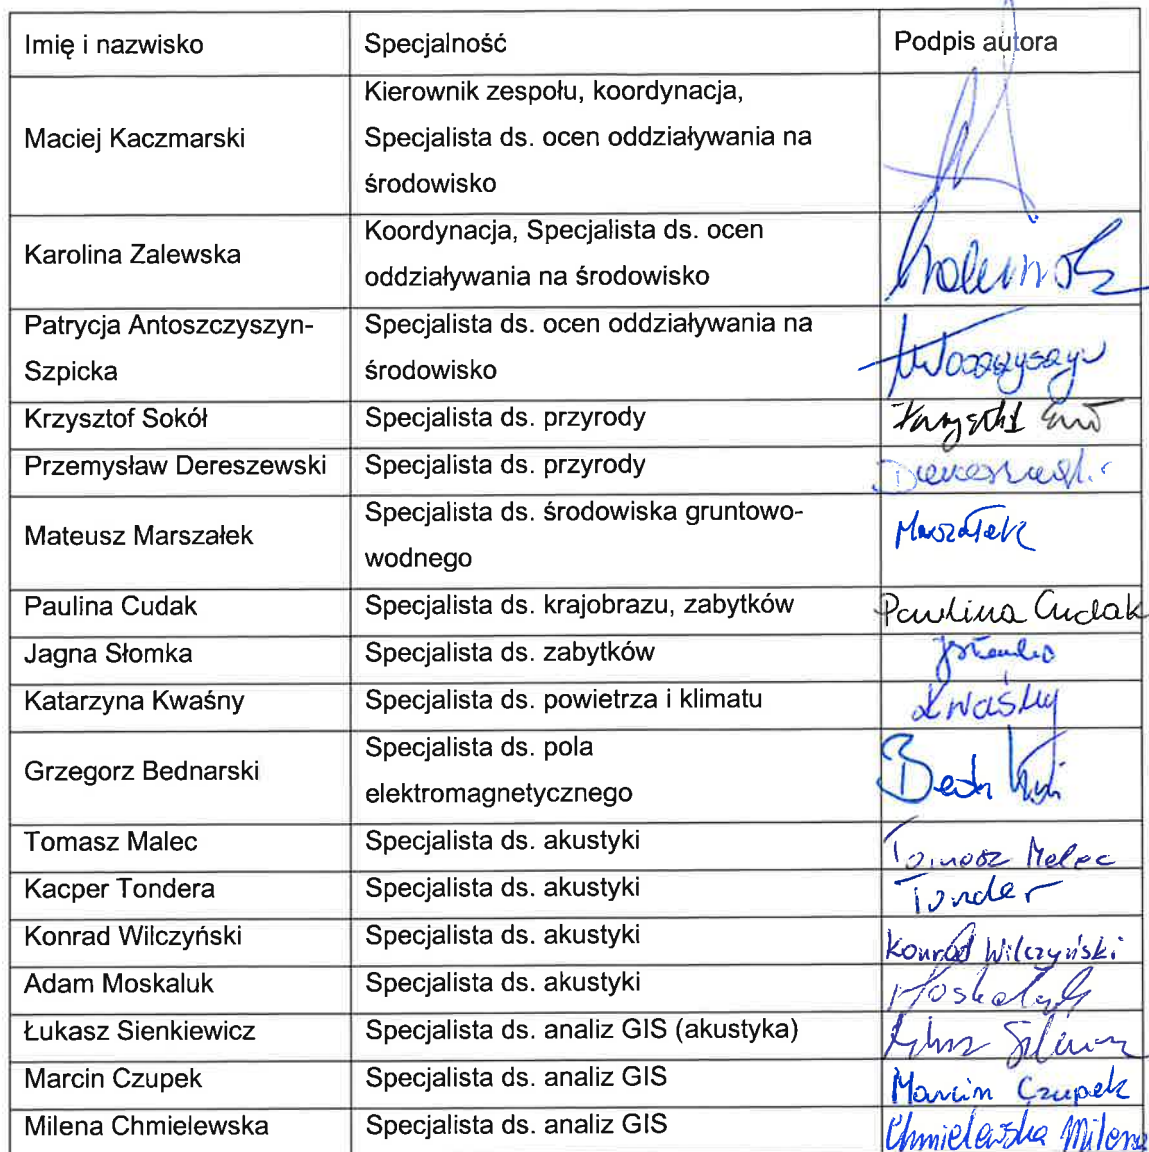 Imię i nazwisko Specjalność Podpis autora
Maciej Kaczmarski Kierownik zespołu, koordynacja,
Specjalista ds. ocen oddziaływania na
środowisko
Karolina Zalewska Koordynacja, Specjalista ds. ocen
oddziaływania na środowisko
Patrycja Antoszczyszyn- Specjalista ds. ocen oddziaływania na
Szpicka środowisko
Krzysztof Sokół Specjalista ds. przyrody
Przemysław Dereszewski Specjalista ds. przyrody
Mateusz Marszałek Specjalista ds. środowiska gruntowo- Marszałek
wodnego
Paulina Cudak Specjalista ds. krajobrazu, zabytków Paulina Cudak
Jagna Słomka Specjalista ds. zabytków
Katarzyna Kwaśny Specjalista ds. powietrza i klimatu Kwaśny
Grzegorz Bednarski Specjalista ds. pola
elektromagnetycznego
Tomasz Malec Specjalista ds. akustyki Tomasz Malec
Kacper Tondera Specjalista ds. akustyki Tonder
Konrad Wilczyński Specjalista ds. akustyki Konrad Wilczyński
Adam Moskaluk Specjalista ds. akustyki Moskaluk
Łukasz Sienkiewicz Specjalista ds. analiz GIS (akustyka)
Marcin Czupek Specjalista ds. analiz GIS Marcin Czupek
Milena Chmielewska Specjalista ds. analiz GIS Chmielewska Milena